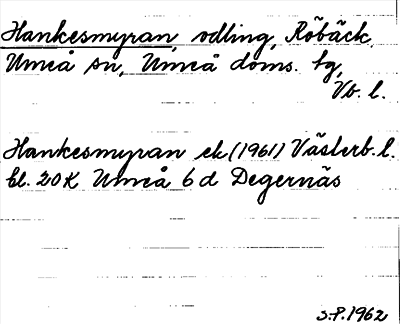 Hankesmyran, odling, Röbäck,
Umeå sn, Umeå doms. tg,
Vb. l.
Hankesmyran ek (1961) Västerb. l.
bl. 20K Umeå 6d Degernäs
S.P. 1962